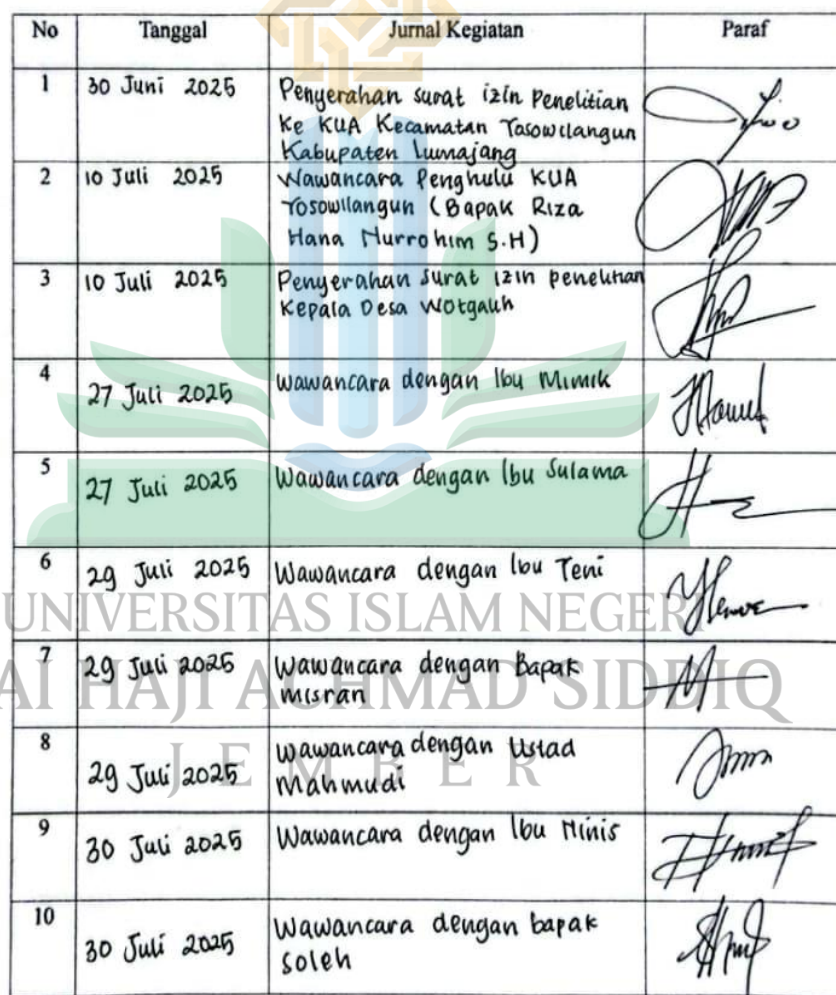 No Tanggal Jurnal Kegiatan Paraf
1 30 Juni 2025 Penyerahan surat izin Penelitian
Ke KUA Kecamatan Yosowilangun
Kabupaten Lumajang
2 10 Juli 2025 Wawancara Penghulu KUA
Yosowilangun (Bapak Riza
Hana Nurrohim S.H)
3 10 Juli 2025 Penyerahan surat izin penelitian
Kepala Desa Wotgalih
4 27 Juli 2025 Wawancara dengan Ibu Mimik
5 27 Juli 2025 Wawancara dengan Ibu Sulama
6 29 Juli 2025 Wawancara dengan Ibu Teni
UNIVERSITAS ISLAM NEGERI
7 29 Juli 2025 Wawancara dengan Bapak
Misran
AI HAJI ACHMAD SIDDIQ
8 29 Juli 2025 Wawancara dengan Ustad
Mahmudi
JEMBER
9 30 Juli 2025 Wawancara dengan Ibu
10 30 Juli 2025 Wawancara dengan bapak
soleh